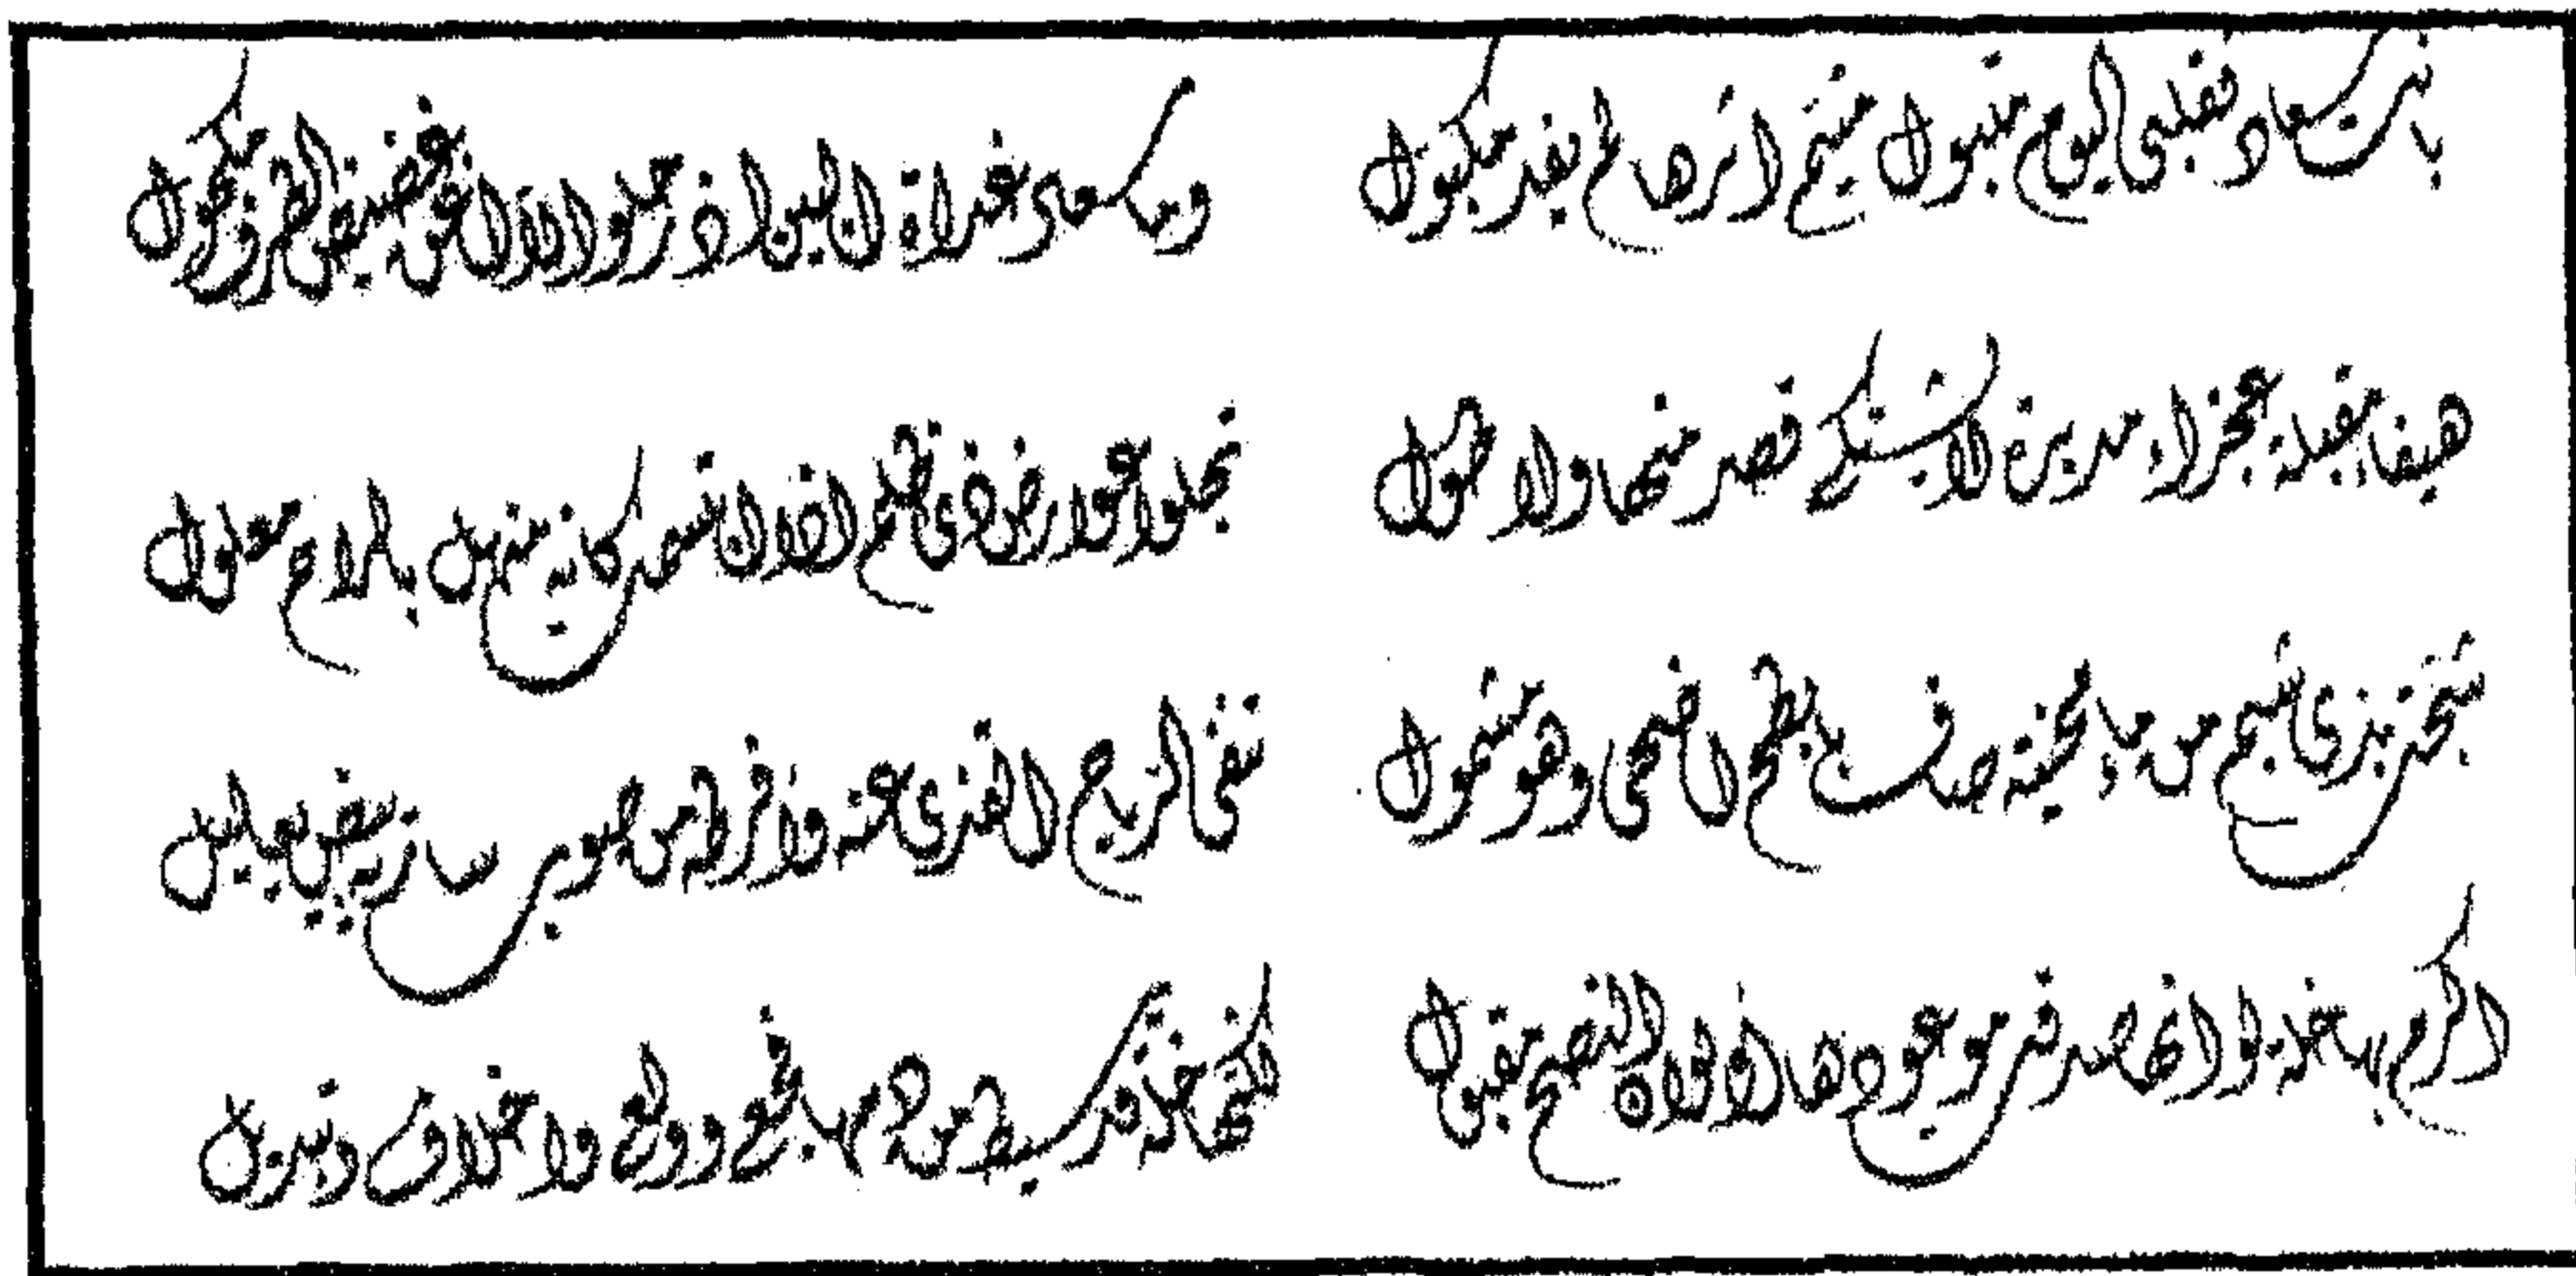 بانت سعاد فقلبي اليوم متبول متيم اثرها لم يفد مكبول وما سعاد غداة البين اذ رحلوا الا اغن غضيض الطرف مكحول
هيفاء مقبلة عجزاء مدبرة لا يشتكى قصر منها ولا طول تجلوا عوارض ذي ظلم اذا ابتسمت كانه منهل بالراح معلول
شجت بذي شبم من ماء محنية صاف بابطح اضحى وهو مشمول تنفي الرياح القذى عنه وافرطه من صوب سارية بيض يعاليل
اكرم بها خلة لو انها صدقت موعودها او لو ان النصح مقبول لكنها خلة قد سيط من دمها فجع وولع واخلاف وتبديل